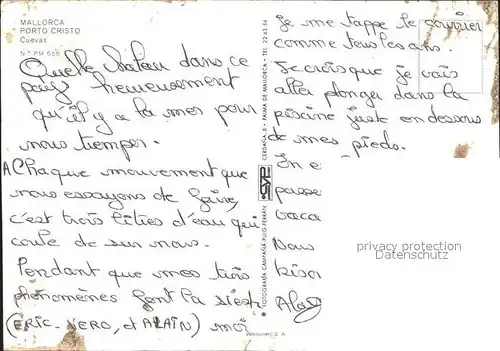 MALLORCA
PORTO CRISTO
Cuevas
N.º PM 556
Quelle Safau dans ce
pays heureusement
qu'il y a la mer pour
nous tremper.
A Chaque mouvement que
nous essayons de faire,
c'est trois litres d'eau qui
coule de sur nous.
Pendant que mes trois
phénomènes font la sieste
(ERIC. NERO, et ALAIN) moi
FOTOGRAFIA CAMPAÑA-PUIG-FERRAN
CYP
CERDAÑA, 8 • PALMA DE MALLORCA • TEL. 22 63 56
Je me tappe le courrier
comme tous les ans.
Je crois que je vais
aller plonger dans la
piscine juste en dessous
de mes pieds.
In e
passe
vaca
Nous
bison
privacy protection
Datenschutz